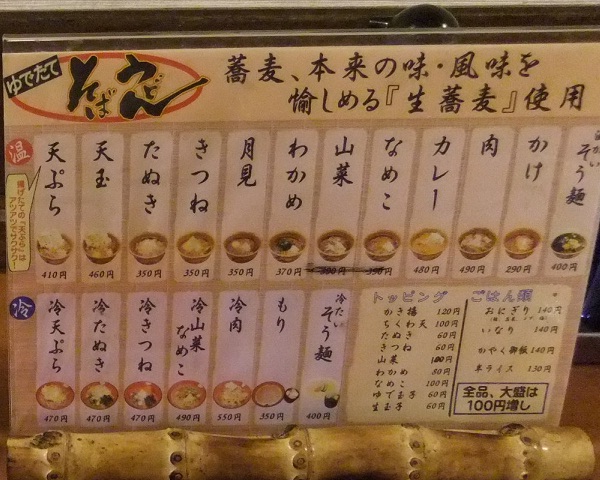 ゆでたて
そば
うどん
蕎麦、本来の味・風味を
愉しめる『生蕎麦』使用
温
揚げたての『天ぷら』は
アツアツでサクサク!
そう麺
400円
かけ
290円
肉
490円
カレー
480円
なめこ
390円
山菜
わかめ
370円
月見
350円
きつね
350円
たぬき
350円
天玉
460円
天ぷら
410円
冷
冷たい
そう麺
400円
もり
350円
冷肉
550円
冷山菜
なめこ
490円
冷きつね
470円
冷たぬき
470円
冷天ぷら
470円
トッピング
かき揚 120円
ちくわ天 100円
たぬき 60円
きつね 60円
山菜 100円
わかめ 80円
なめこ 100円
ゆで玉子 60円
生玉子 60円
ごはん類
おにぎり 140円
いなり 100円
かやく御飯 140円
半ライス 130円
全品、大盛は
100円増し